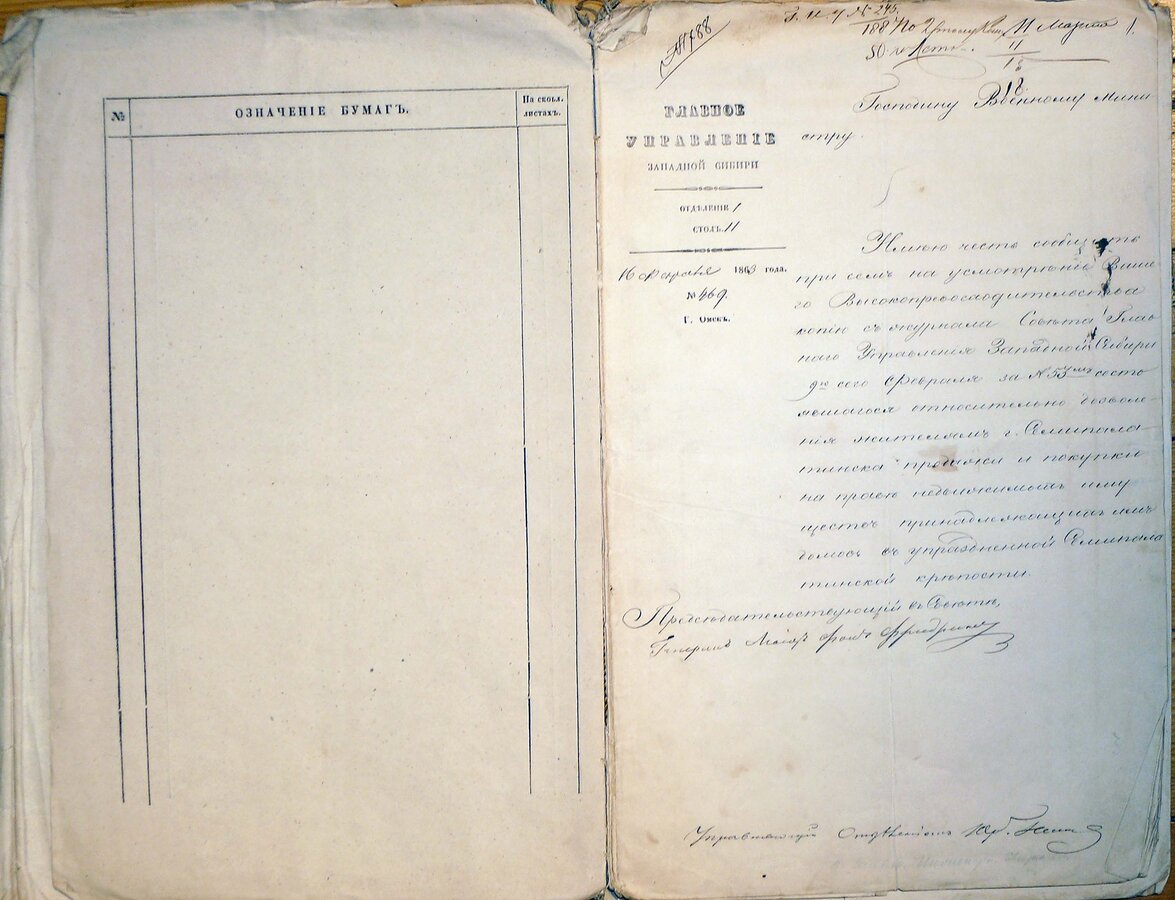 №
ОЗНАЧЕНІЕ БУМАГЪ.
На скольк.
листахъ.
№ 1788
Г. И. У № 245
11 Марта
1
18
Господину Военному Мини
стру.
ГЛАВНОЕ
УПРАВЛЕНІЕ
ЗАПАДНОЙ СИБИРИ
ОТДѢЛЕНІЕ 1
СТОЛЪ 11
16 Февраля 1863 года.
№ 469.
Г. Омскъ.
Имѣю честь сообщить
при семъ на усмотрѣніе Ваше
го Высокопревосходительства
копію съ журнала Совѣта Глав
наго Управленія Западной Сибири
9го сего Февраля за № 53мъ состо
явшагося относительно дозволе-
нія жителямъ г. Семипала-
тинска продажи и покупки
на правѣ недвижимыхъ иму
ществъ принадлежащихъ имъ
домовъ въ упраздненной Семипала
тинской крѣпости.
Предсѣдательствующій въ Совѣтѣ,
Генералъ Маіоръ фонъ Фридрихсъ
Управляющій Отдѣленіемъ